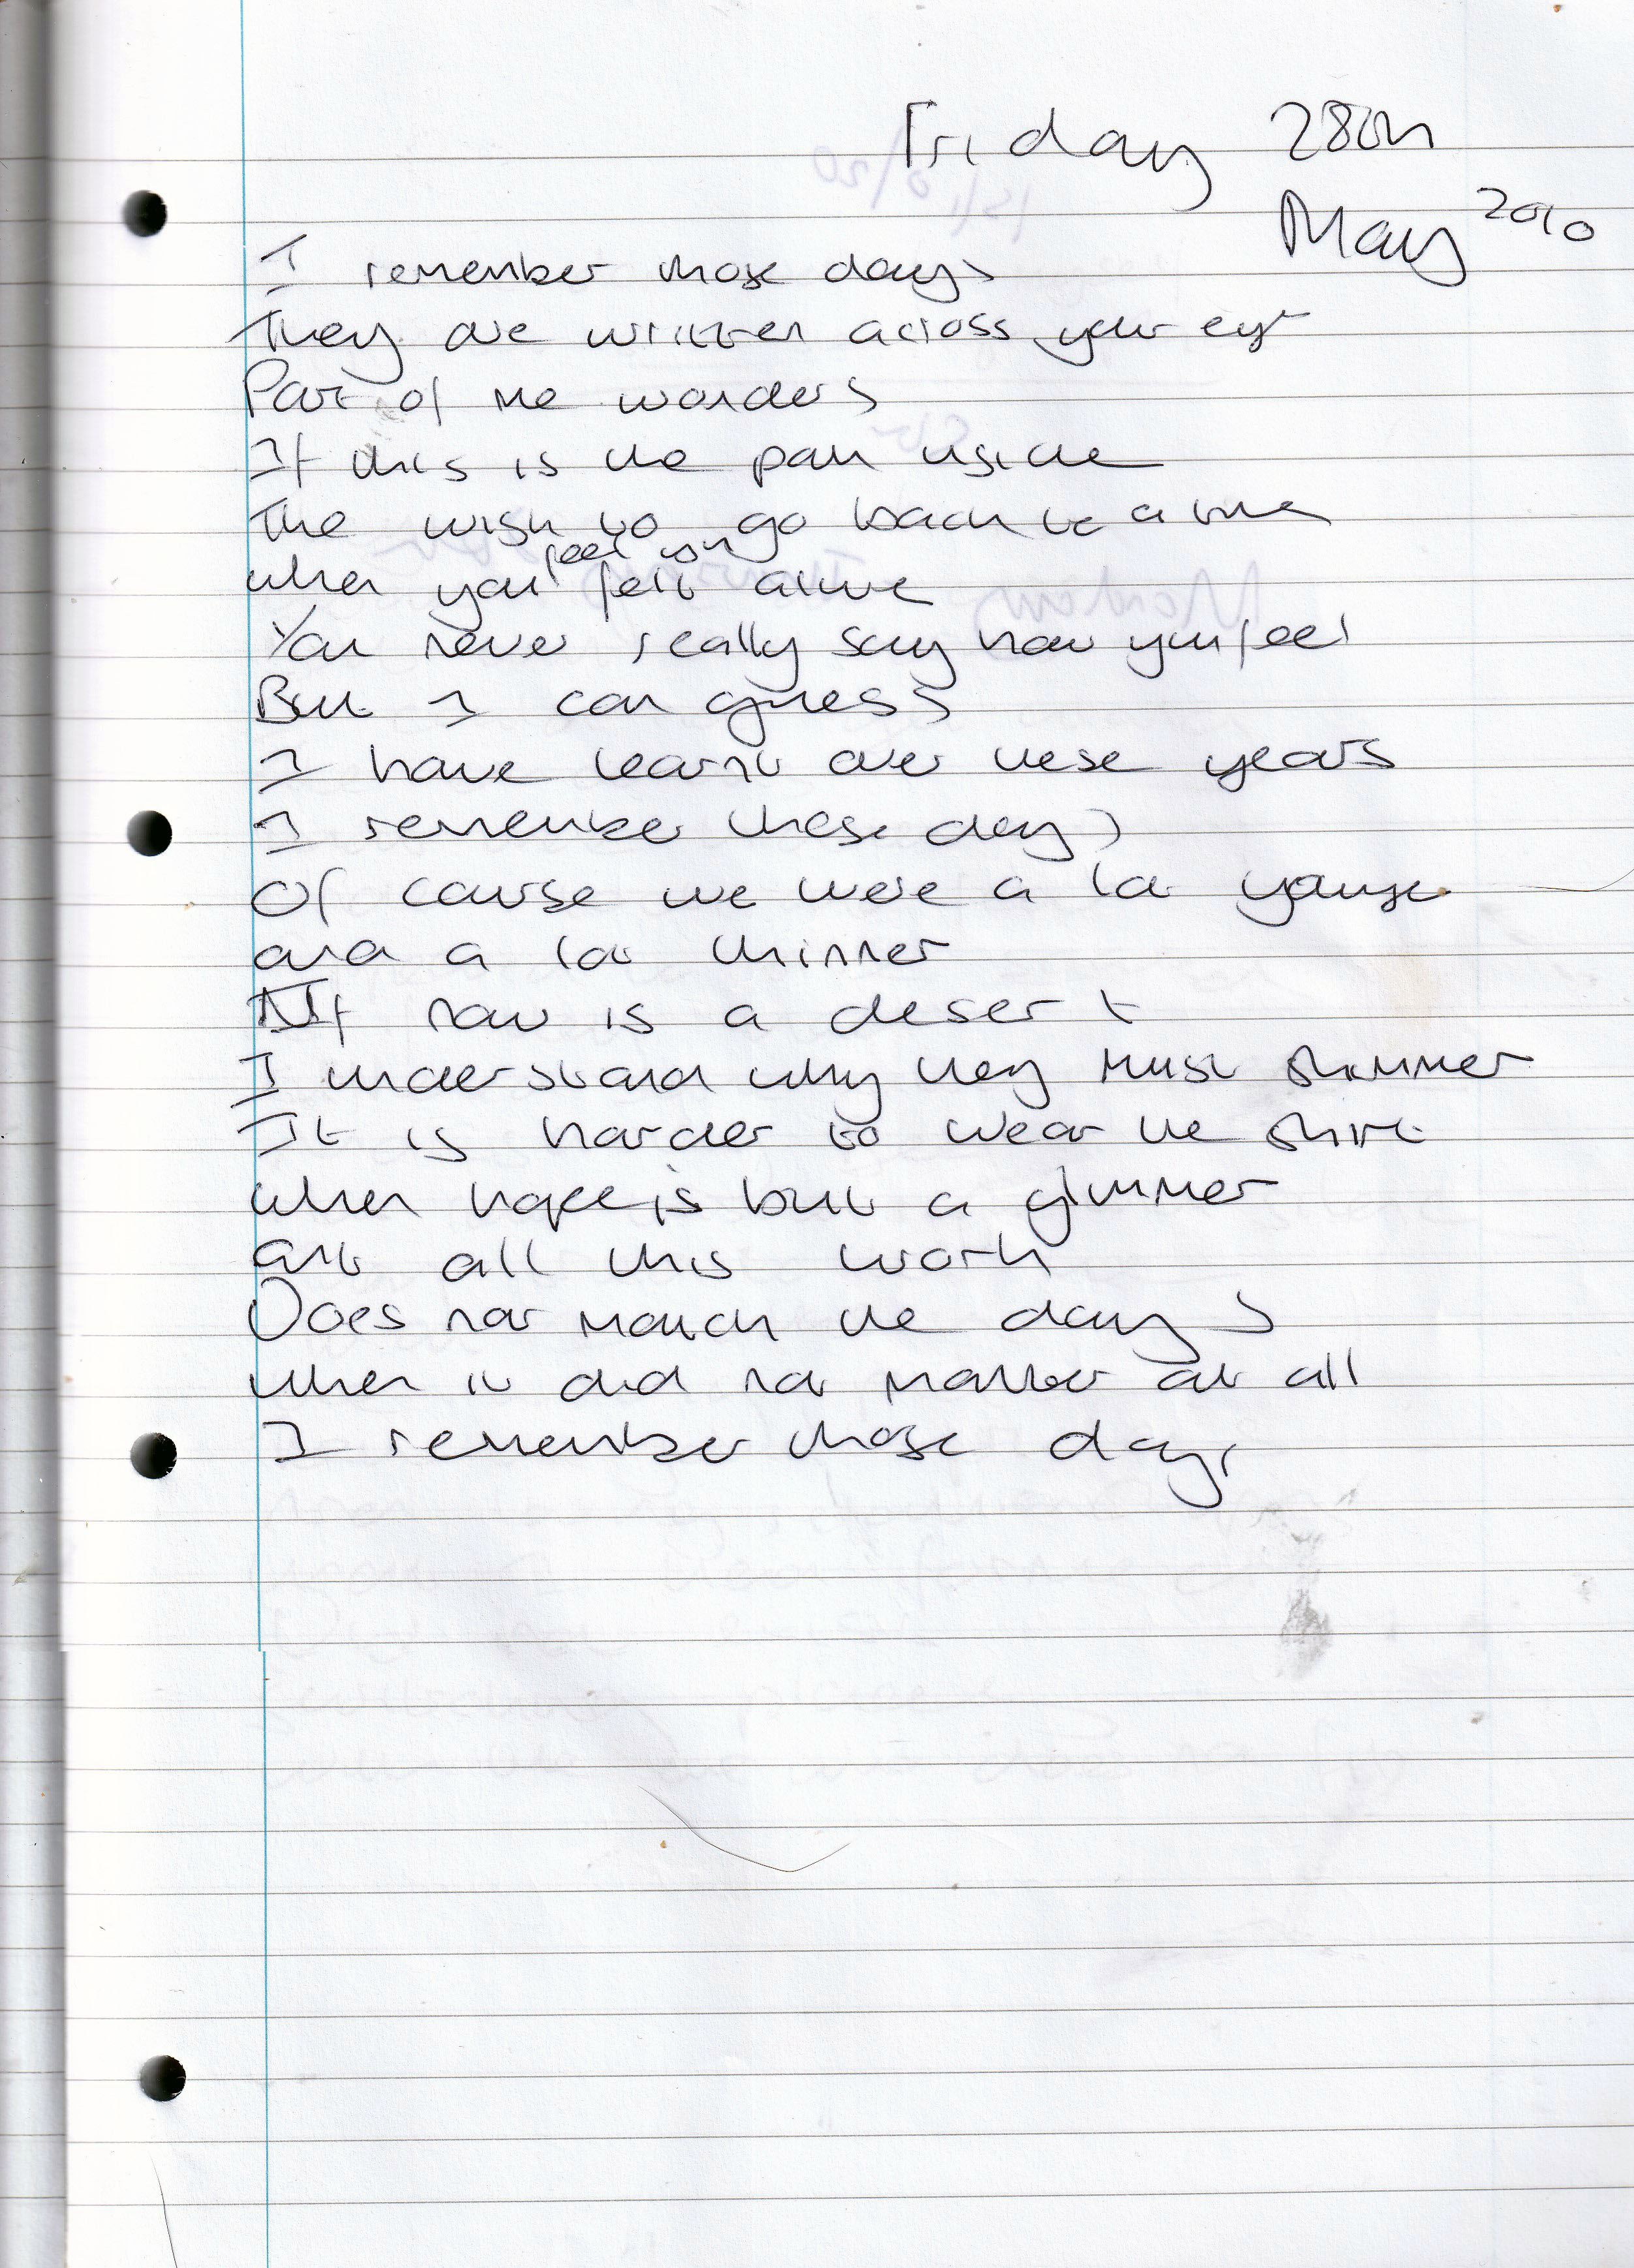 Friday 28th
May 2010
I remember those days
They are written across your eye
Part of me wonders
If this is the pain inside
The wish to go back to a time
feel
when you felt alive
You never really say how you feel
But I can guess
I have learnt over these years
I remember these days
Of course we were a lot younger
and a lot thinner
If now is a desert
I understand why they must shimmer
It is harder to wear the shirt
when hope is but a glimmer
all this worth
Does not match the days
when it did not matter at all
I remember those days